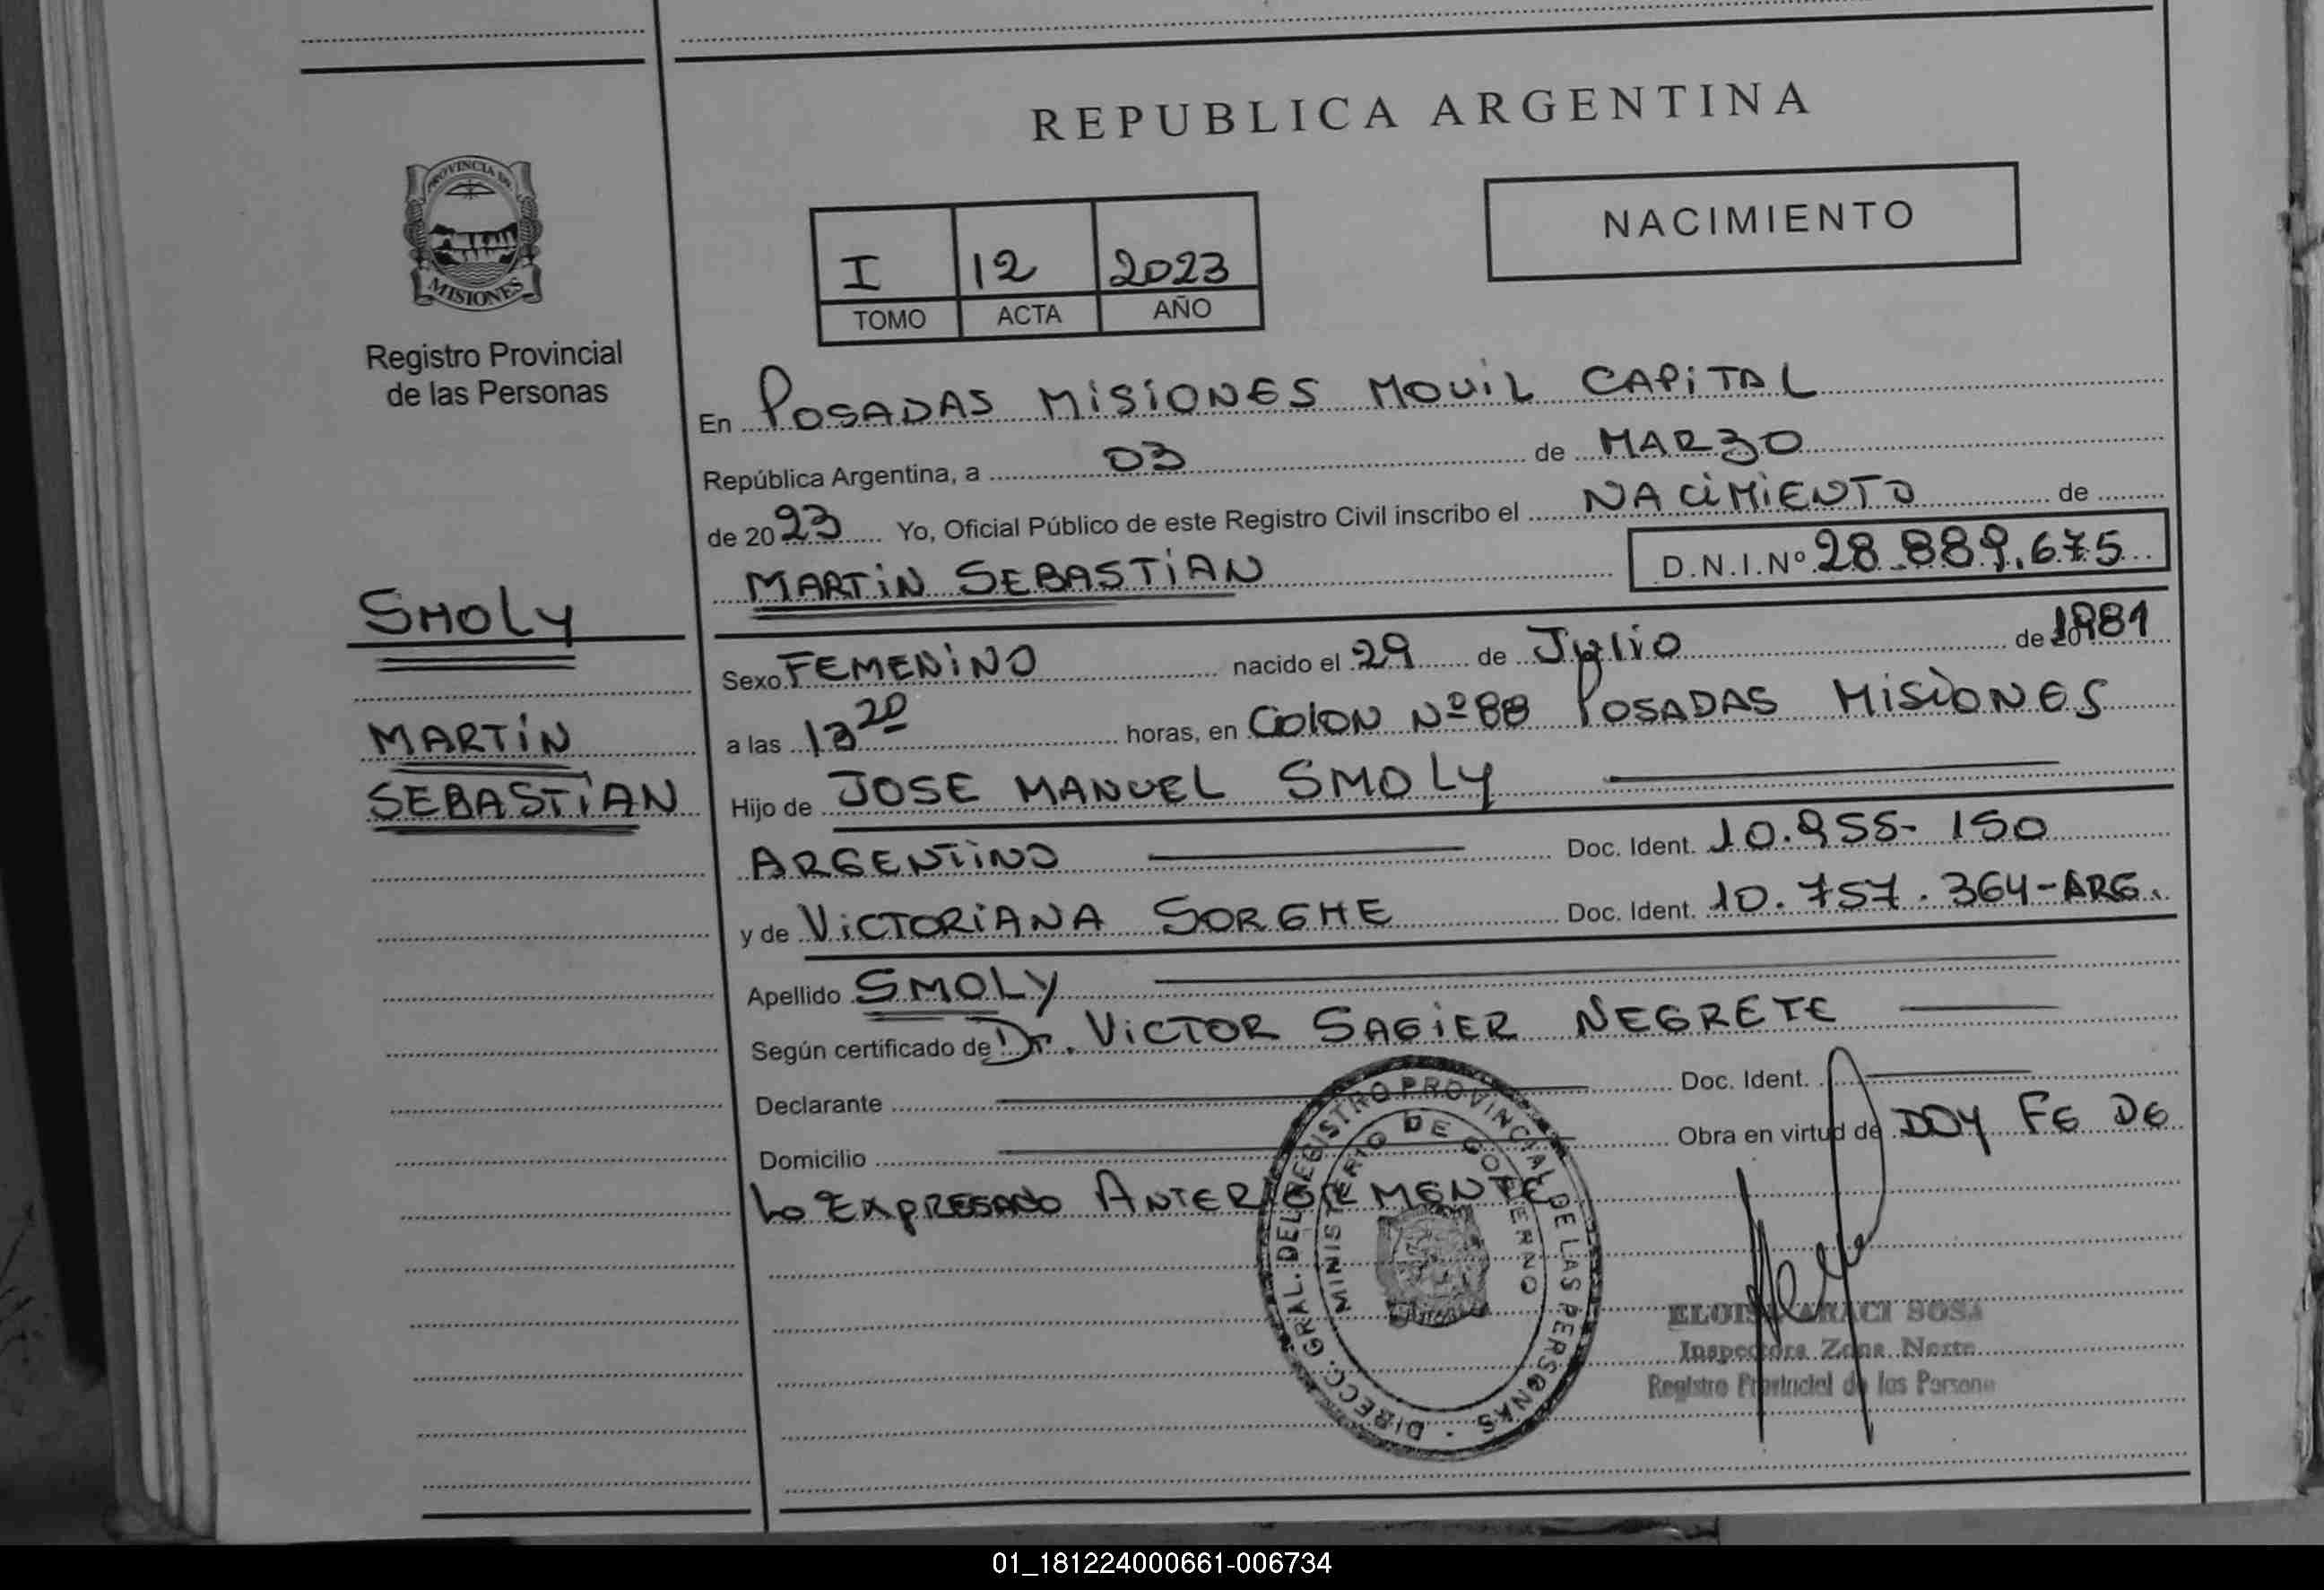 REPUBLICA ARGENTINA
PROVINCIA DE
MISIONES
Registro Provincial
de las Personas
NACIMIENTO
I 12 2023
TOMO ACTA AÑO
En POSADAS MISIONES MOVIL CAPITAL
República Argentina, a 03 de MARZO
de 2023 Yo, Oficial Público de este Registro Civil inscribo el NACIMIENTO de
MARTIN SEBASTIAN D.N.I.Nº 28.889.675
SMOLY
MARTIN
SEBASTIAN
Sexo FEMENINO nacido el 29 de Julio de 1981
a las 13 20 horas, en COLON Nº 88 POSADAS MISIONES
Hijo de JOSE MANUEL SMOLY
ARGENTINO Doc. Ident. 10.955-150
y de VICTORIANA SORGHE Doc. Ident. 10.757.364-ARG.
Apellido SMOLY
Según certificado de Dr. VICTOR SAGIER NEGRETE
Declarante Doc. Ident.
Domicilio Obra en virtud de DOY FE DE
LO EXPRESADO ANTERIORMENTE
DIRECC. GRAL. DEL REGISTRO PROVINCIAL DE LAS PERSONAS
MINISTERIO DE GOBIERNO
ARACI SOSA
Inspectora Zona Norte
Registro Provincial de las Persona
01_181224000661-006734